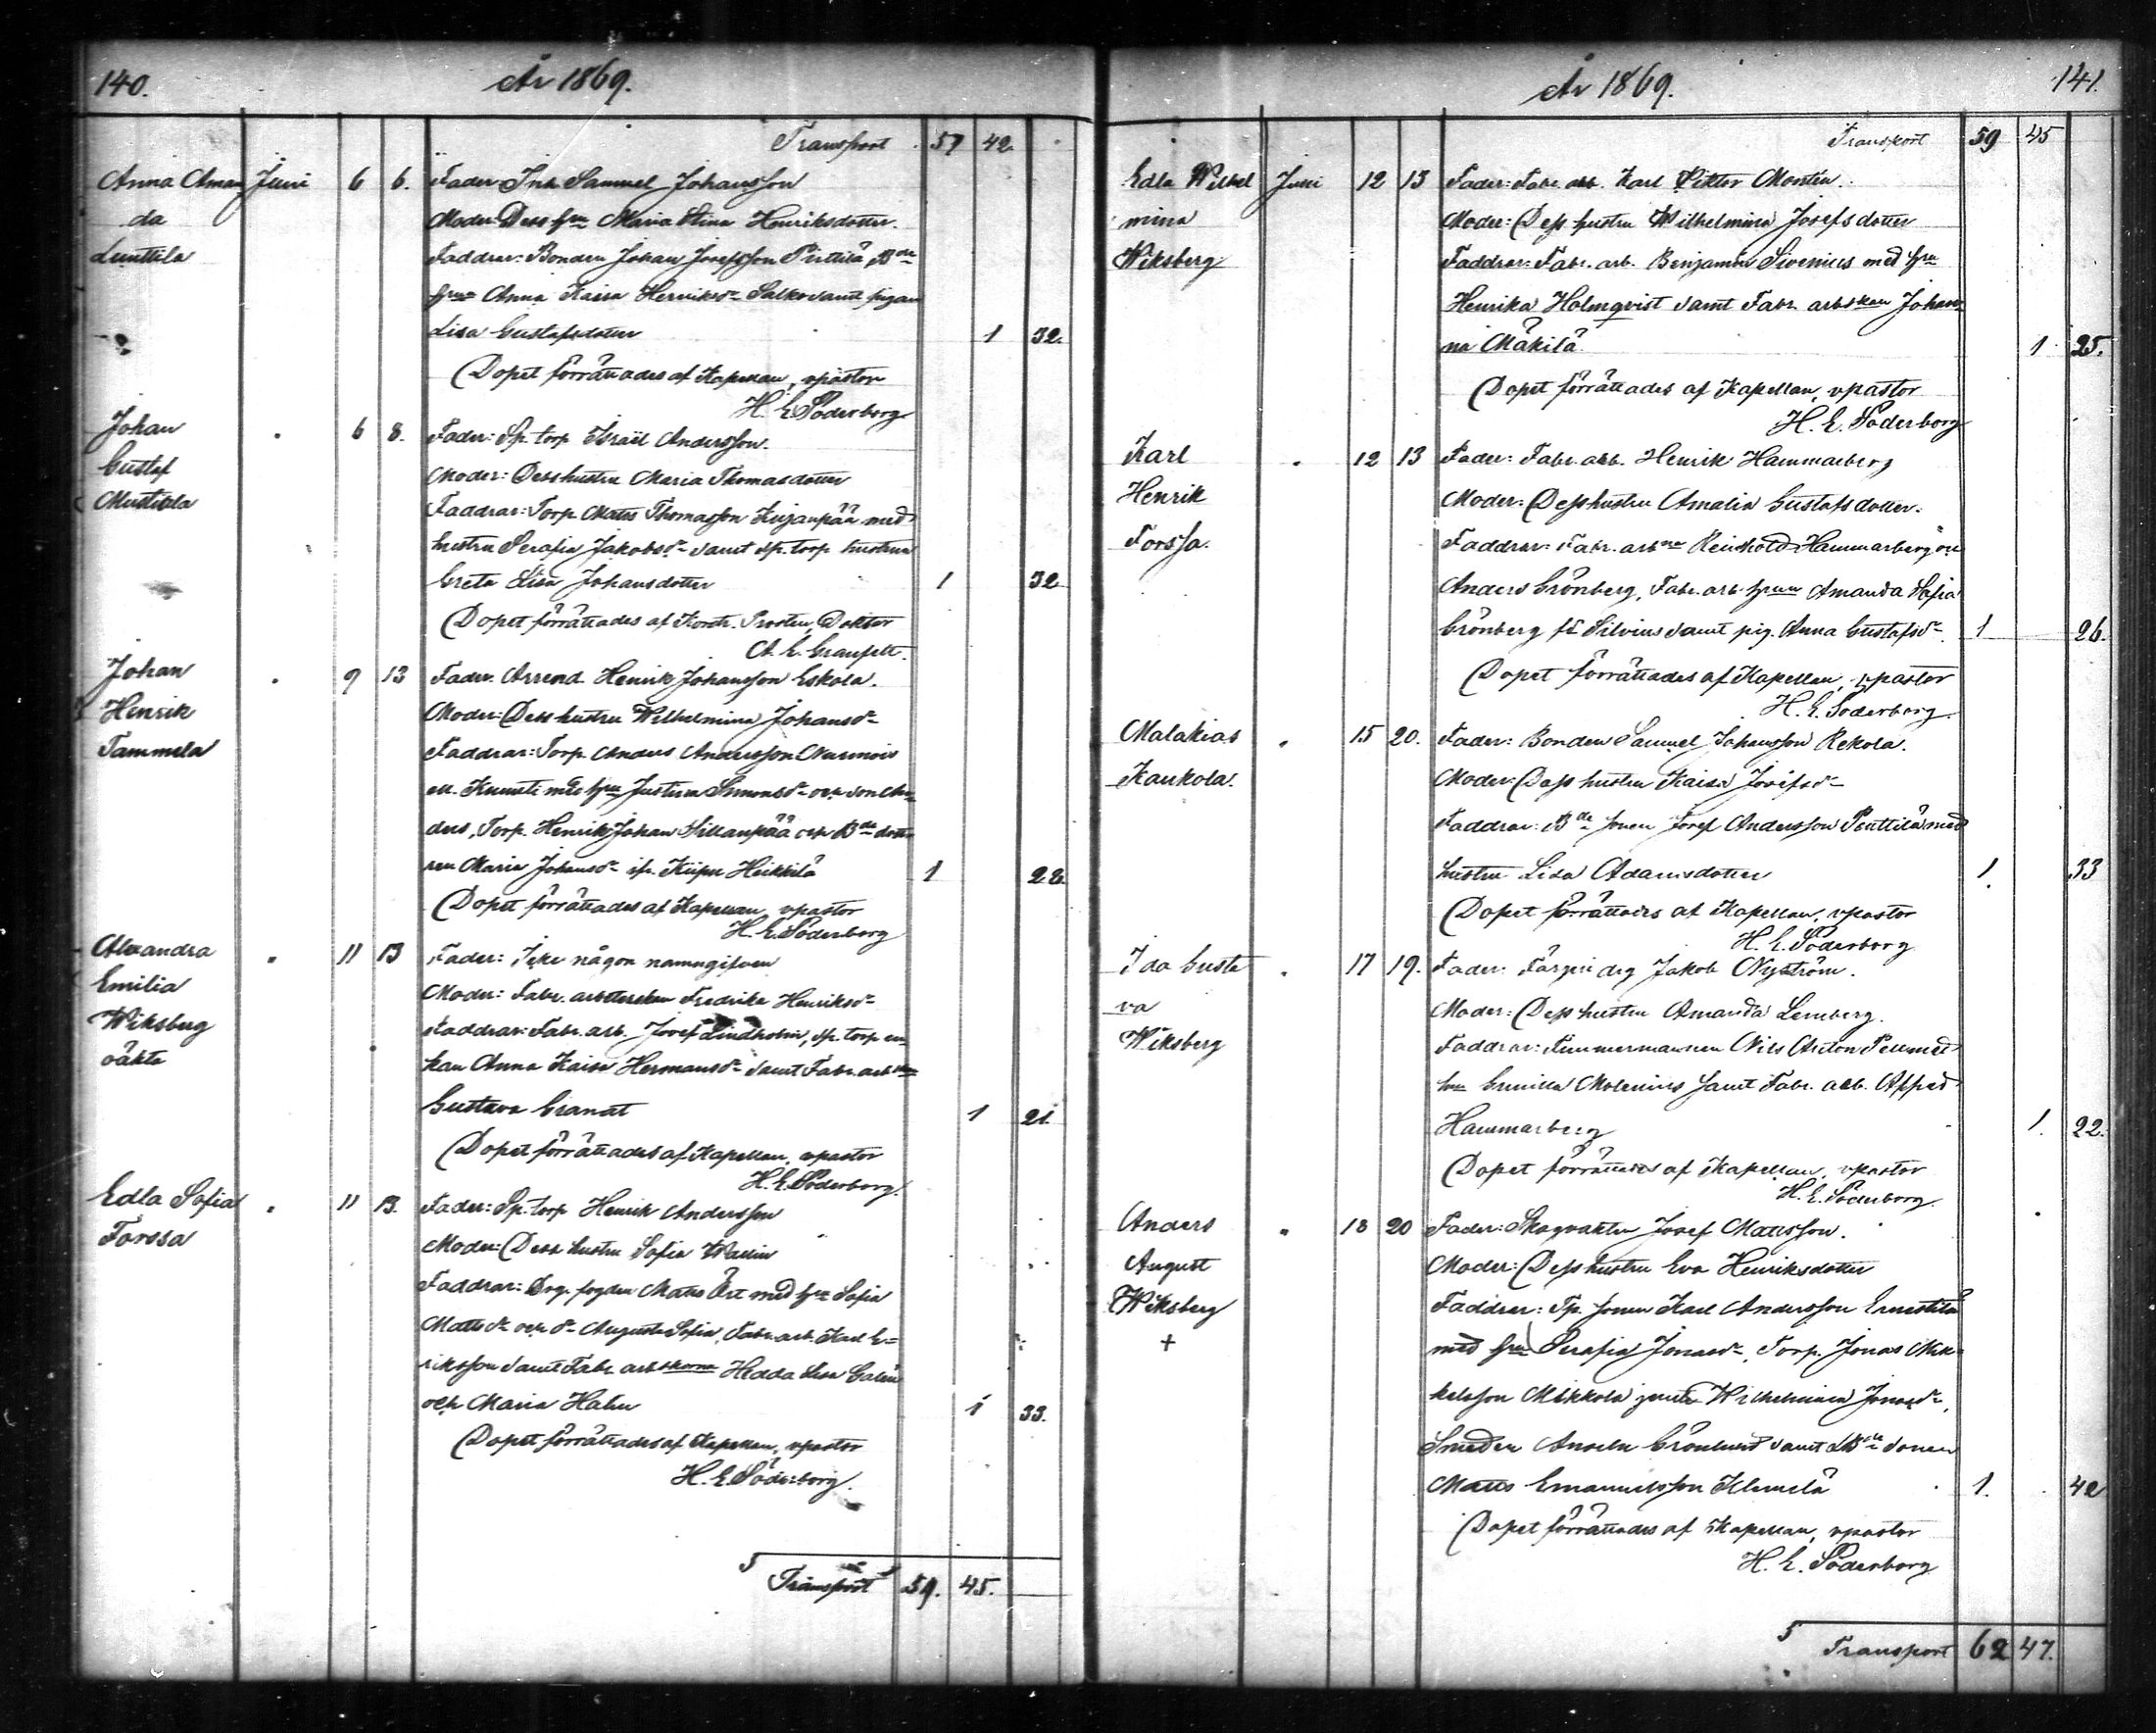 140.
År 1869.
Transport 57 42
Anna Aman Juni 6 6. Fader: Inh. Samuel Johansson
da Moder: Dess hru Maria Stina Henriksdotter.
Lunttila Faddrar: Bonden Johan Josefsson Pirttilä, Bde
hrun Anna Kaisa Henriksdr Salko samt pigan
Lisa Gustafsdotter 1 32.
Dopet förrättades af Kapellan, vpastor
H. E. Söderborg
Johan " 6 8. Fader: Sp. torp Israël Andersson.
Gustaf Moder: Dess hustru Maria Thomasdotter
Mustiala Faddrar: Torp. Matts Thomasson Kujanpää med
hustru Serafia Jakobsdr samt sp. torp hustrun
Greta Lisa Johansdotter 1 32
Dopet förrättades af Kontr. Prosten, Doktor
A. E. Granfelt.
Johan " 9 13 Fader. Arrend. Henrik Johansson Eskola.
Henrik Moder: Dess hustru Wilhelmina Johansdr
Tammela Faddrar: Torp. Anders Andersson Nurmois
med hru Justina Simonsdr och son An-
ders, Torp. Henrik Johan Sillanpää och Bde dotte
ren Maria Johansdr ifr. Heikkilä 1 28.
Dopet förrättades af Kapellan, vpastor
H. E. Söderborg
Alexandra " 11 13 Fader: Icke någon namngifven
Emilia Moder: Fabr. arbeterskan Fredrika Henriksdr
Wiksberg Faddrar: Fabr. arb. Josef Lindholm, sp. torp en-
oäkta kan Anna Kaisa Hermansdr samt Fabr. arb skan
Gustava Granat 1 21.
Dopet förrättades af Kapellan, vpastor
H. E. Söderborg.
Edla Sofia " 11 13. Fader: Sp. torp Henrik Andersson
Forssa Moder: Dess hustru Sofia Wallin
Faddrar: Drg. fogden Matts Ört med hru Sofia
Matts dr och dr Augusta Sofia, Fabr. arb. Karl E-
riksson samt Fabr. arb skorna Hedda Lisa Galén
och Maria Hahn 1 33.
Dopet förrättades af Kapellan, vpastor
H. E. Söderborg.
5 Transport 59. 45.
141.
År 1869.
Transport 59 45
Edla Wilhel Juni 12 13 Fader: Fabr. arb. Karl Viktor Montin.
mina Moder: Dess hustru Wilhelmina Josefsdotter
Wiksberg Faddrar: Fabr. arb. Benjamin Sivenius med hru
Henrika Holmqvist samt Fabr. arbskan Johan-
na Mäkilä 1 25.
Dopet förrättades af Kapellan, vpastor
H. E. Söderborg
Karl " 12 13 Fader: Fabr. arb. Henrik Hammarberg
Henrik Moder: Dess hustru Amalia Gustafsdotter.
Forssa. Faddrar: Fabr. arbne Reinhold Hammarberg och
Anders Grönberg, Fabr. arb. hrun Amanda Sofia
Grönberg fd Silvius samt pig. Anna Gustafsdr 1 26.
Dopet förrättades af Kapellan, vpastor
H. E. Söderborg.
Malakias " 15 20. Fader: Bonden Samuel Johansson Rekola.
Kaukola. Moder: Dess hustru Kaisa Josefsdr
Faddrar: Bde sonen Josef Andersson Penttilä med
hustru Lisa Adamsdotter 1 33
Dopet förrättades af Kapellan, vpastor
H. E. Söderborg
Ida Gusta " 17 19. Fader: Färgeri drg Jakob Nyström.
va Moder: Dess hustru Amanda Lemberg.
Wiksberg Faddrar: Timmermannen Nils Anton Pell med
hru Gunilla Molenius samt Fabr. arb. Alfred
Hammarberg 1. 22.
Dopet förrättades af Kapellan, vpastor
H. E. Söderborg.
Anders " 18 20 Fader: Skogvaktn Josef Mattsson.
August Moder: Dess hustru Eva Henriksdotter
Wiksberg Faddrar: Tp. sonen Karl Andersson Ernestilä
+ med hru Serafia Jonasdr, Torp. Jonas Mik-
kelsson Mikkola jemte Wilhelmina Jonasdr,
Smeden Anselm Grönlund samt Bde sonen
Matts Emanuelsson Klemelä 1. 42
Dopet förrättades af Kapellan, vpastor
H. E. Söderborg
5 Transport 62 47.